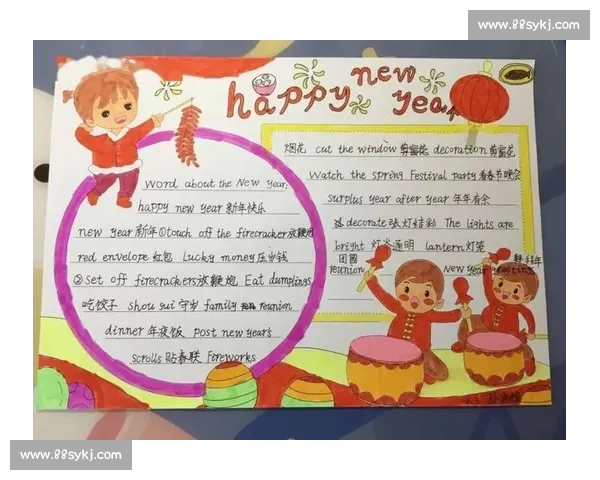 www.88sykj.com
happy new year
Word about the New Year:
happy new year 新年快乐
new year 新年①touch off the firecracker放鞭炮
red envelope 红包 Lucky money压岁钱
②set off firecrackers放鞭炮 Eat dumplings
吃饺子 shou sui 守岁 family reunion
dinner 年夜饭 post new years
scrolls 贴春联 Fireworks
烟花 cut the window 剪窗花 decoration 剪窗花
Watch the spring Festival party 看春节晚会
surplus year after year 年年有余
decorate 张灯结彩 The lights are
bright 灯火通明 lantern灯笼
团圆 拜年
reunion New Year greeting
www.88sykj.com